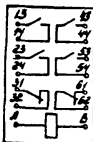 13 43
14 44
23 53
24 54
31 61
32 62
A B